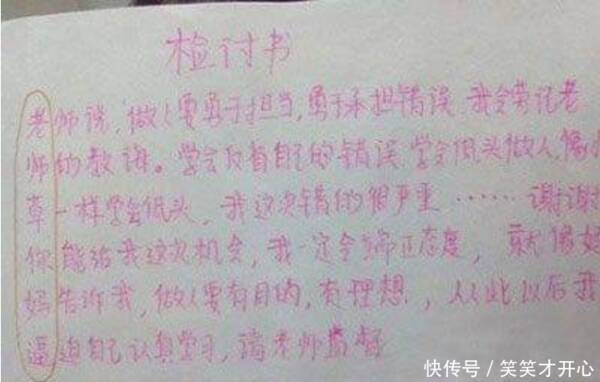 检讨书
老师说,做人要勇于担当,勇于承担错误.我会芸记老
师的教诲。学会反省自己的错误 学会低头做人,像小
草一样学会低头,我这次错的很严重……谢谢
你能给我这次机会,我一定会端正态度,就像妈
妈告诉我,做人要有目的,有理想,从此以后我
逼迫自己认真学习,请老师监督
快传号 / 笑笑才开心